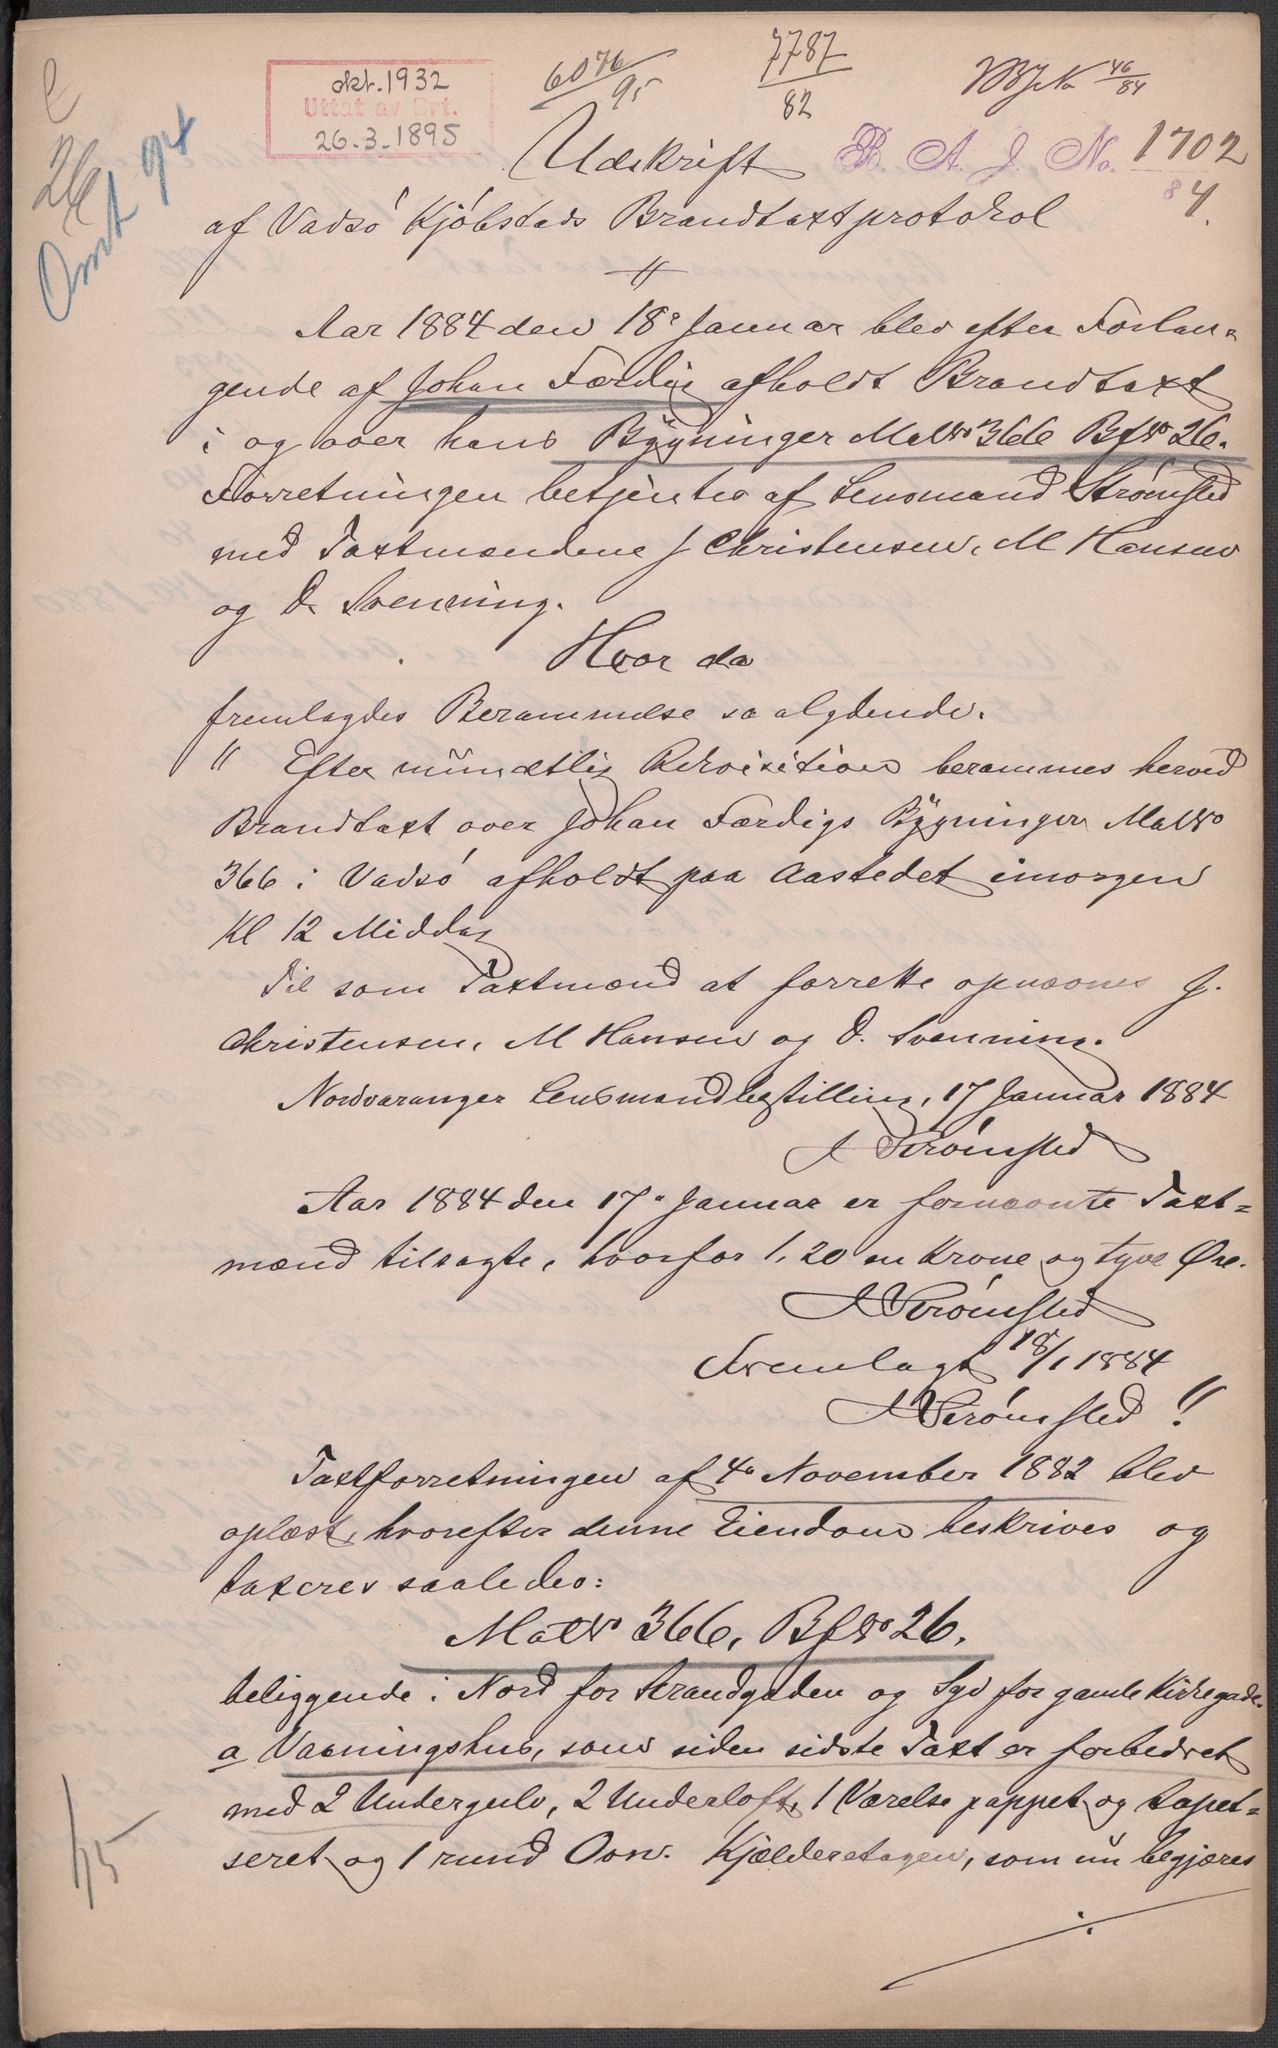 C
26
Omt 94
okt. 1932
Uttat av Brt.
26.3.1895
6076/95
7787/82
46/84
Udskrift
B. A. J. No. 1702/84.
af Vadsö Kjöbstads Brandtaxtprotokol
Aar 1884 den 18de Januar blev efter Forlan-
gende af Johan Færdig afholdt Brandtaxt
i og over hans Bygninger Mat No 366 Bf No 26.
Forretningen betjentes af Lensmand Strømsted
med Taxtmændene J Christensen, M Hansen
og D. Svenning.
Hvor da
fremlagdes Berammelse saalydende.
" Efter mündtlig Rekvisition berammes herved
Brandtaxt over Johan Færdigs Bygninger Mat No
366 i Vadsö afholdt paa Aastedet imorgen
Kl 12 Middag
Til som Taxtmænd at forrette opnævnes J.
Christensen, M Hansen og D. Svenning.
Nordvaranger Lensmandbestilling, 17 Januar 1884
A Strömsted
Aar 1884 den 17de Januar er fornævnte Taxt=
mænd tilsagte, hvorfor 1,20 en Krone og tyve Øre.
A Strömsted
Fremlagt 18/1 1884
A Strömsted "
Taxtforretningen af 4de November 1882 blev
oplæst, hvorefter denne Eiendom beskrives og
taxeres saaledes:
Mat No 366, Bf No 26.
beliggende i Nord for Strandgaden og Syd for gamle Kirkegade.
a Vaaningshus, som siden sidste Taxt er forbedret
med 2 Undergulv, 2 Underloft, 1 Værelse pappet og tapet=
seret og 1 rund Ovn. Kjælderetagen, som nü begjæres
./.
1/15